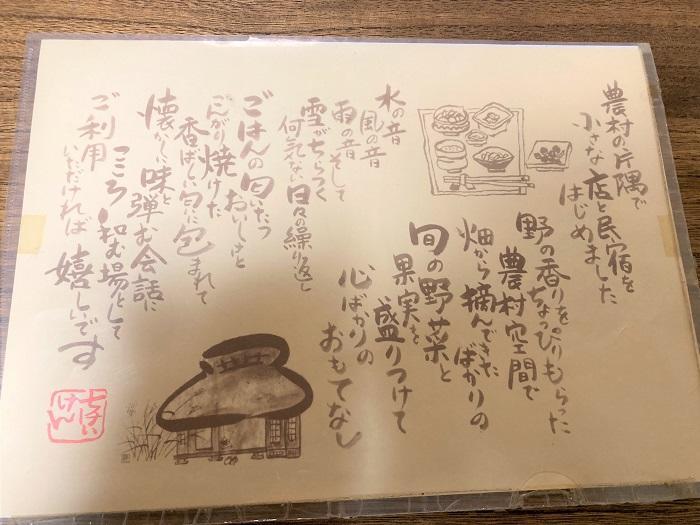 農村の片隅で
小さな店と民宿を
はじめました
野の香りをちょっぴりもらった
農村空間で
畑から摘んできたばかりの
旬の野菜と
果実を
盛りつけて
心ばかりの
おもてなし
水の音
風の音
雨の音そして
雪がちらつく
何気ない日々の繰り返し
ごはんの匂いたつ
おいしさと
こんがり焼けた
香ばしい匂に包まれて
懐かしい味と
弾む会話に
こころ和む場として
ご利用
いただければ嬉しいです